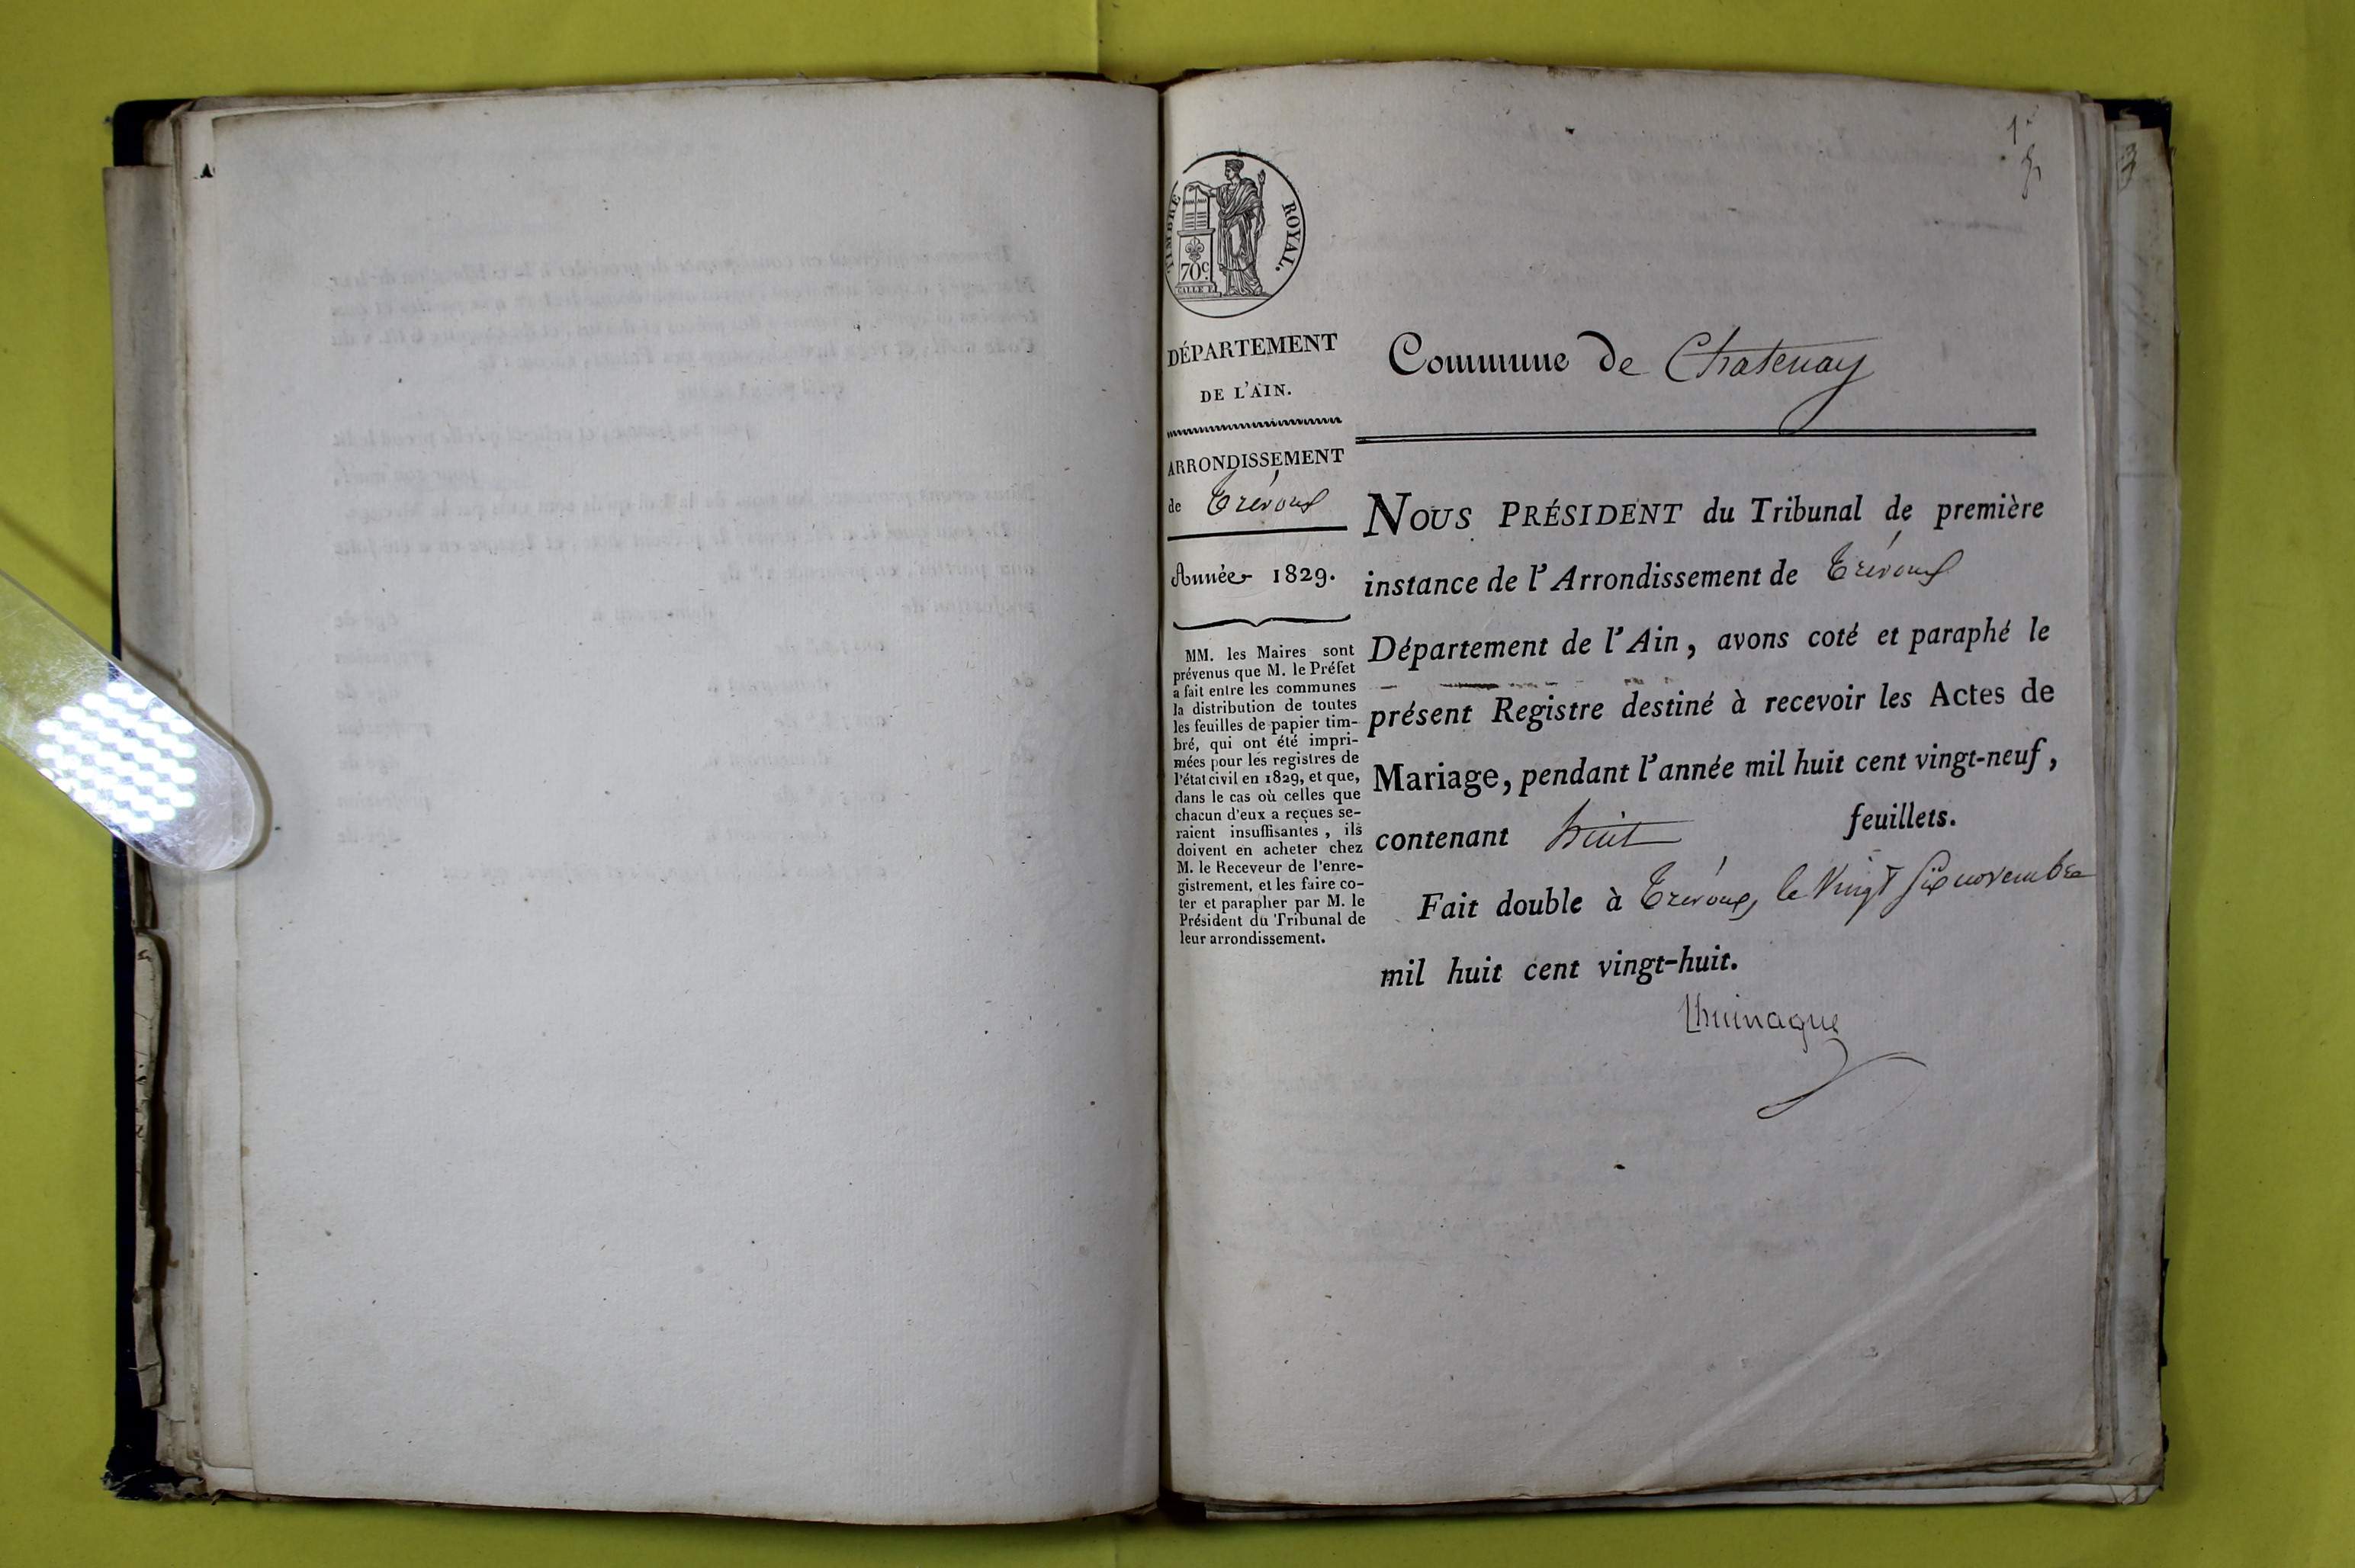 1er
TIMBRE ROYAL.
70c
DÉPARTEMENT
DE L'AIN.
ARRONDISSEMENT
de Trévoux
Année 1829.
MM. les Maires sont
prévenus que M. le Préfet
a fait entre les communes
la distribution de toutes
les feuilles de papier tim-
bré, qui ont été impri-
mées pour les registres de
l'état civil en 1829, et que,
dans le cas où celles que
chacun d'eux a reçues se-
raient insuffisantes, ils
doivent en acheter chez
M. le Receveur de l'enre-
gistrement, et les faire co-
ter et parapher par M. le
Président du Tribunal de
leur arrondissement.
Commune de Chatenay
NOUS PRÉSIDENT du Tribunal de première
instance de l'Arrondissement de Trévoux
Département de l'Ain, avons coté et paraphé le
présent Registre destiné à recevoir les Actes de
Mariage, pendant l'année mil huit cent vingt-neuf,
contenant huit feuillets.
Fait double à Trévoux, le Vingt Six novembre
mil huit cent vingt-huit.